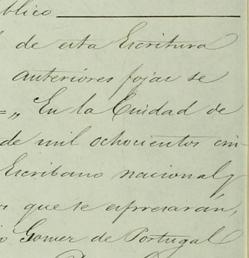 blico
de esta Escritura
anteriores fojas se
=„ En la Ciudad de
de mil ochocientos cin
Escribano nacional y
que se espresarán,
Gomez de Portugal